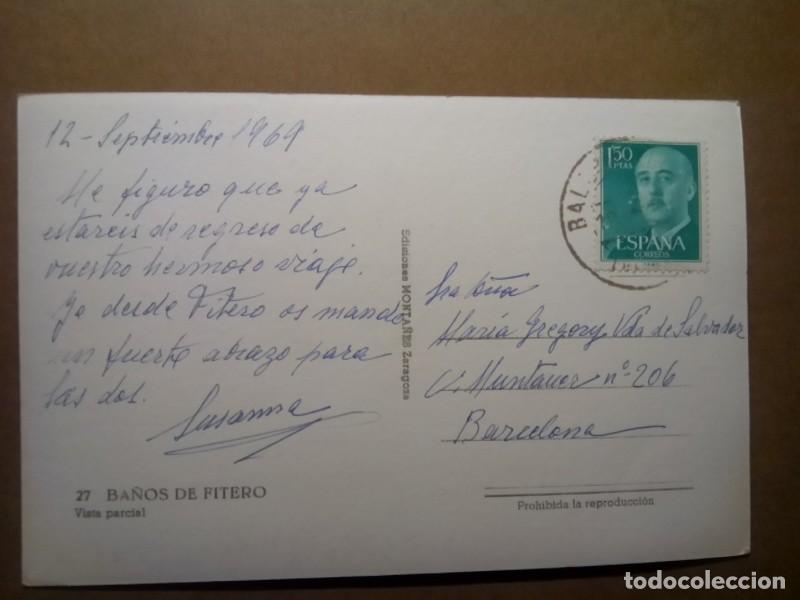 12-Septiembre 1969
Me figuro que ya
estareis de regreso de
vuestro hermoso viaje.
Yo desde Fitero os mando
un fuerte abrazo para
las dos.
Susanna
27 BAÑOS DE FITERO
Vista parcial
Ediciones MONTAÑES Zaragoza
1,50
PTAS
ESPAÑA
CORREOS
BAL
Sra Doña
María Gregory Vda de Salvador
C/. Muntaner nº 206
Barcelona
Prohibida la reproducción
todocoleccion.net